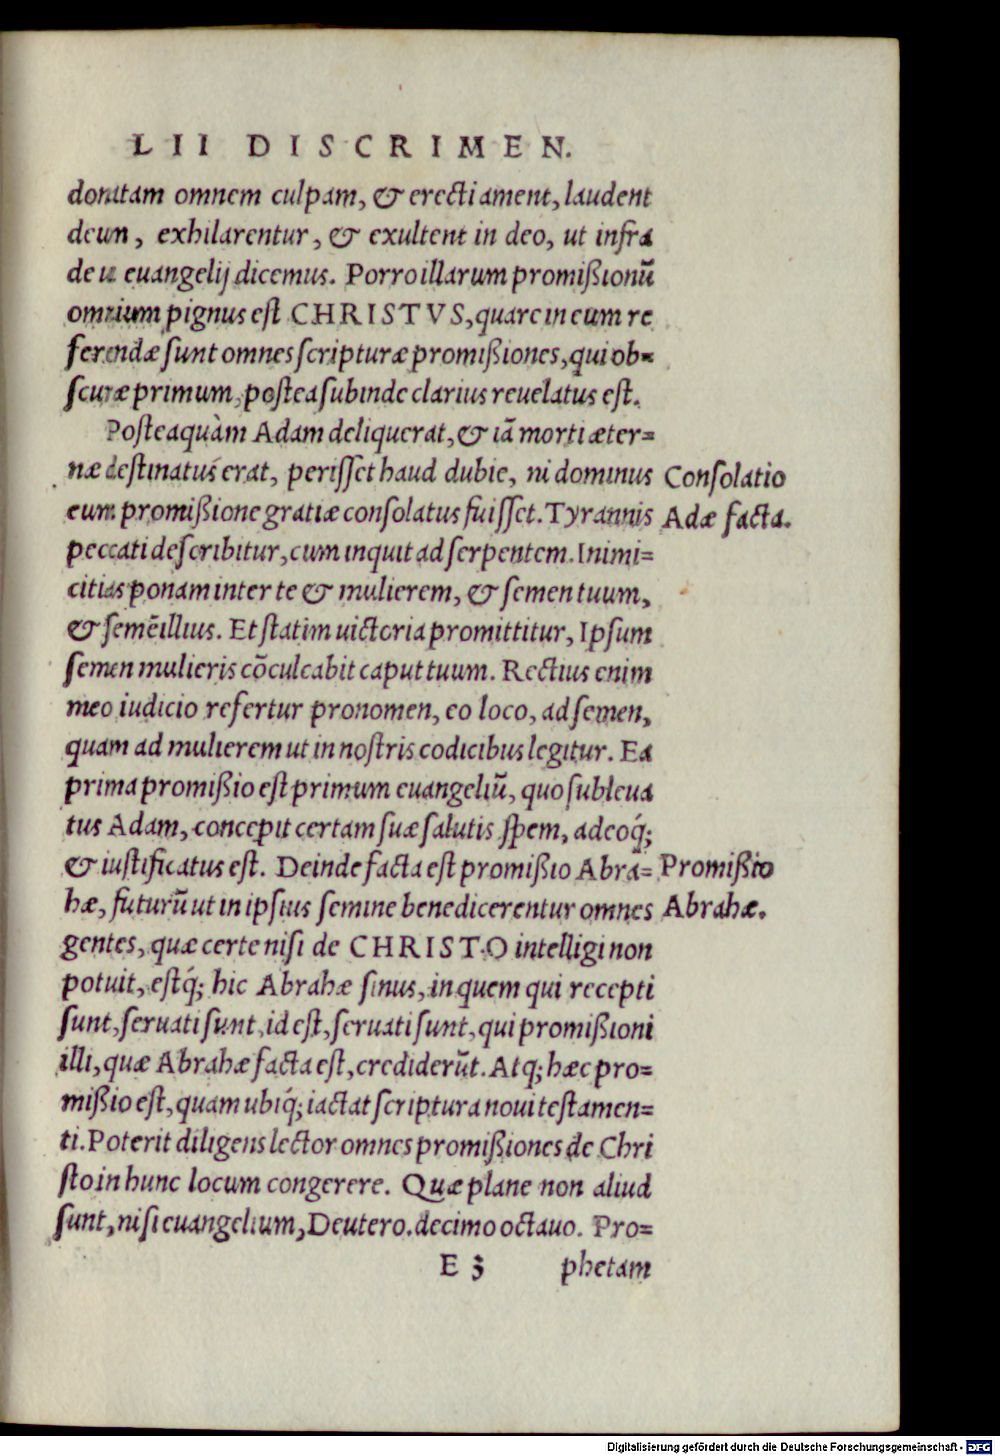 LII DISCRIMEN.
donatam omnem culpam, & erecti ament, laudent
deum, exhilarentur, & exultent in deo, ut infra
de ui euangelij dicemus. Porro illarum promißionũ
omnium pignus est CHRISTVS, quare in eum re
ferendæ sunt omnes scripturæ promißiones, qui ob=
scuræ primum, postea subinde clarius reuelatus est.
Posteaquàm Adam deliquerat, & iã morti æter=
næ destinatus erat, perisset haud dubie, ni dominus
eum promißione gratiæ consolatus fuisset. Tyrannis
peccati describitur, cum inquit ad serpentem. Inimi=
citias ponam inter te & mulierem, & semen tuum,
& semẽ illius. Et statim uictoria promittitur, Ipsum
semen mulieris cõculcabit caput tuum. Rectius enim
meo iudicio refertur pronomen, eo loco, ad semen,
quam ad mulierem ut in nostris codicibus legitur. Ea
prima promißio est primum euangeliũ, quo subleua
tus Adam, concepit certam suæ salutis spem, adeoq́;
& iustificatus est. Deinde facta est promißio Abra=
hæ, futurũ ut in ipsius semine benedicerentur omnes
gentes, quæ certe nisi de CHRISTO intelligi non
potuit, estq́; hic Abrahæ sinus, in quem qui recepti
sunt, seruati sunt, id est, seruati sunt, qui promißioni
illi, quæ Abrahæ facta est, crediderũt. Atq; hæc pro=
mißio est, quam ubiq́; iactat scriptura noui testamen=
ti. Poterit diligens lector omnes promißiones de Chri
sto in hunc locum congerere. Quæ plane non aliud
sunt, nisi euangelium, Deutero. decimo octauo. Pro=
E 3 phetam
Consolatio
Adæ facta.
Promißio
Abrahæ.
Digitalisierung gefördert durch die Deutsche Forschungsgemeinschaft - DFG